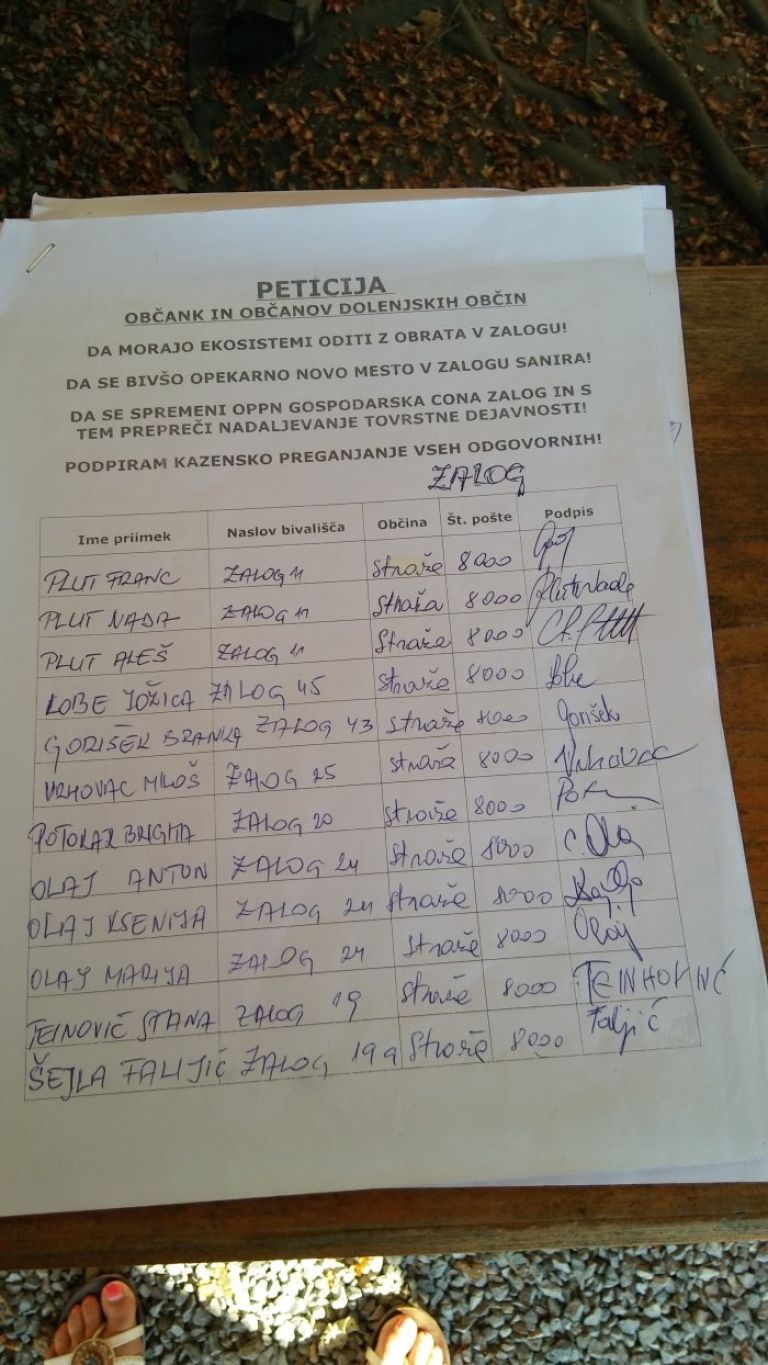 PETICIJA
OBČANK IN OBČANOV DOLENJSKIH OBČIN
DA MORAJO EKOSISTEMI ODITI Z OBRATA V ZALOGU!
DA SE BIVŠO OPEKARNO NOVO MESTO V ZALOGU SANIRA!
DA SE SPREMENI OPPN GOSPODARSKA CONA ZALOG IN S
TEM PREPREČI NADALJEVANJE TOVRSTNE DEJAVNOSTI!
PODPIRAM KAZENSKO PREGANJANJE VSEH ODGOVORNIH!
ZALOG
Ime priimek Naslov bivališča Občina Št. pošte Podpis
PLUT FRANC ZALOG 11 Straže 8000
PLUT NADA ZALOG 11 Straža 8000 Plut Nada
PLUT ALEŠ ZALOG 11 Straže 8000
KOBE JOŽICA ZALOG 45 Straže 8000
GORIŠEK BRANKA ZALOG 43 Straže 8000 Gorišek
VRHOVAC MILOŠ ZALOG 25 Straža 8000 Vrhovac
POTOKAR BRIGITA ZALOG 20 Straže 8000
OLAJ ANTON ZALOG 24 Straže 8000
OLAJ KSENIJA ZALOG 24 Straže 8000
OLAJ MARIJA ZALOG 24 Straže 8000 Olaj
TEINOVIČ STANA ZALOG 19 Straže 8000
ŠEJLA FALJIĆ ZALOG 19a Straže 8000 Faljić